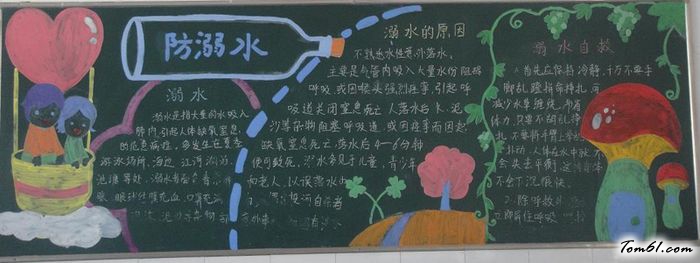 防溺水
溺水
溺水是指大量的水吸入
肺内,引起人体缺氧窒息,
的危急病症,多发生在夏季
游泳场所、海边、江河、湖泊、
池塘等处,溺水者面色青
眼
溺水的原因
不熟悉水性意外落水,
主要是气管内吸入大量水份阻碍
呼吸,或因喉头强烈痉挛,引起呼
吸道关闭窒息死亡人落水后水、泥
沙等杂物阻塞呼吸道,或因痉挛而因起
缺氧窒息死亡,落水后4-6分钟
便可致死,溺水多见于儿童,青少年
和老人,以误落溺水
溺水自救
1.首先应保持冷静,千万不要手
脚乱蹬拼命挣扎,可
减少水草缠绕,节省
体力,只要不胡乱挣
扎,不要将手臂上举
动,人体在水中就不
会失去平衡,这样身体
不会下沉很快。
2.除呼救外
立即屏住呼吸
Tom61.com